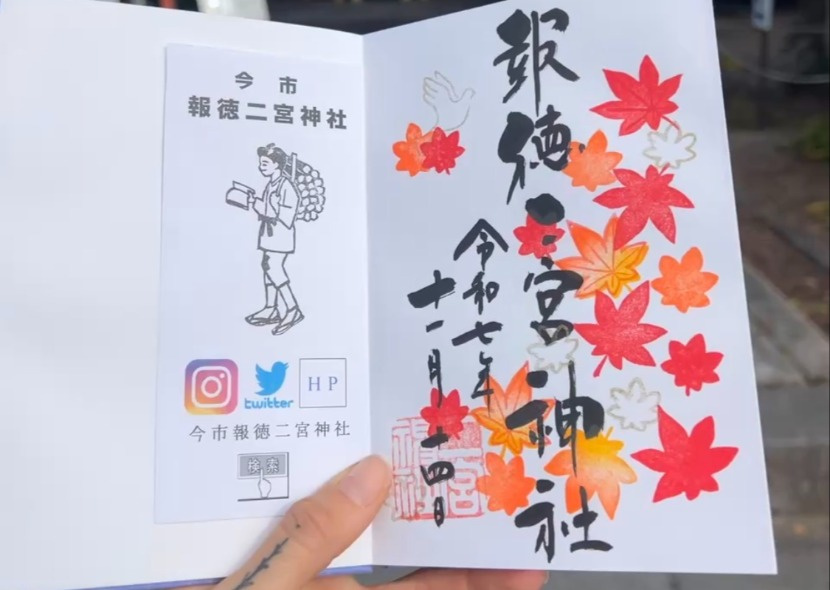 今市
報徳二宮神社
twitter
HP
今市報徳二宮神社
検索
報徳二宮神社
令和七年
十一月二十四日